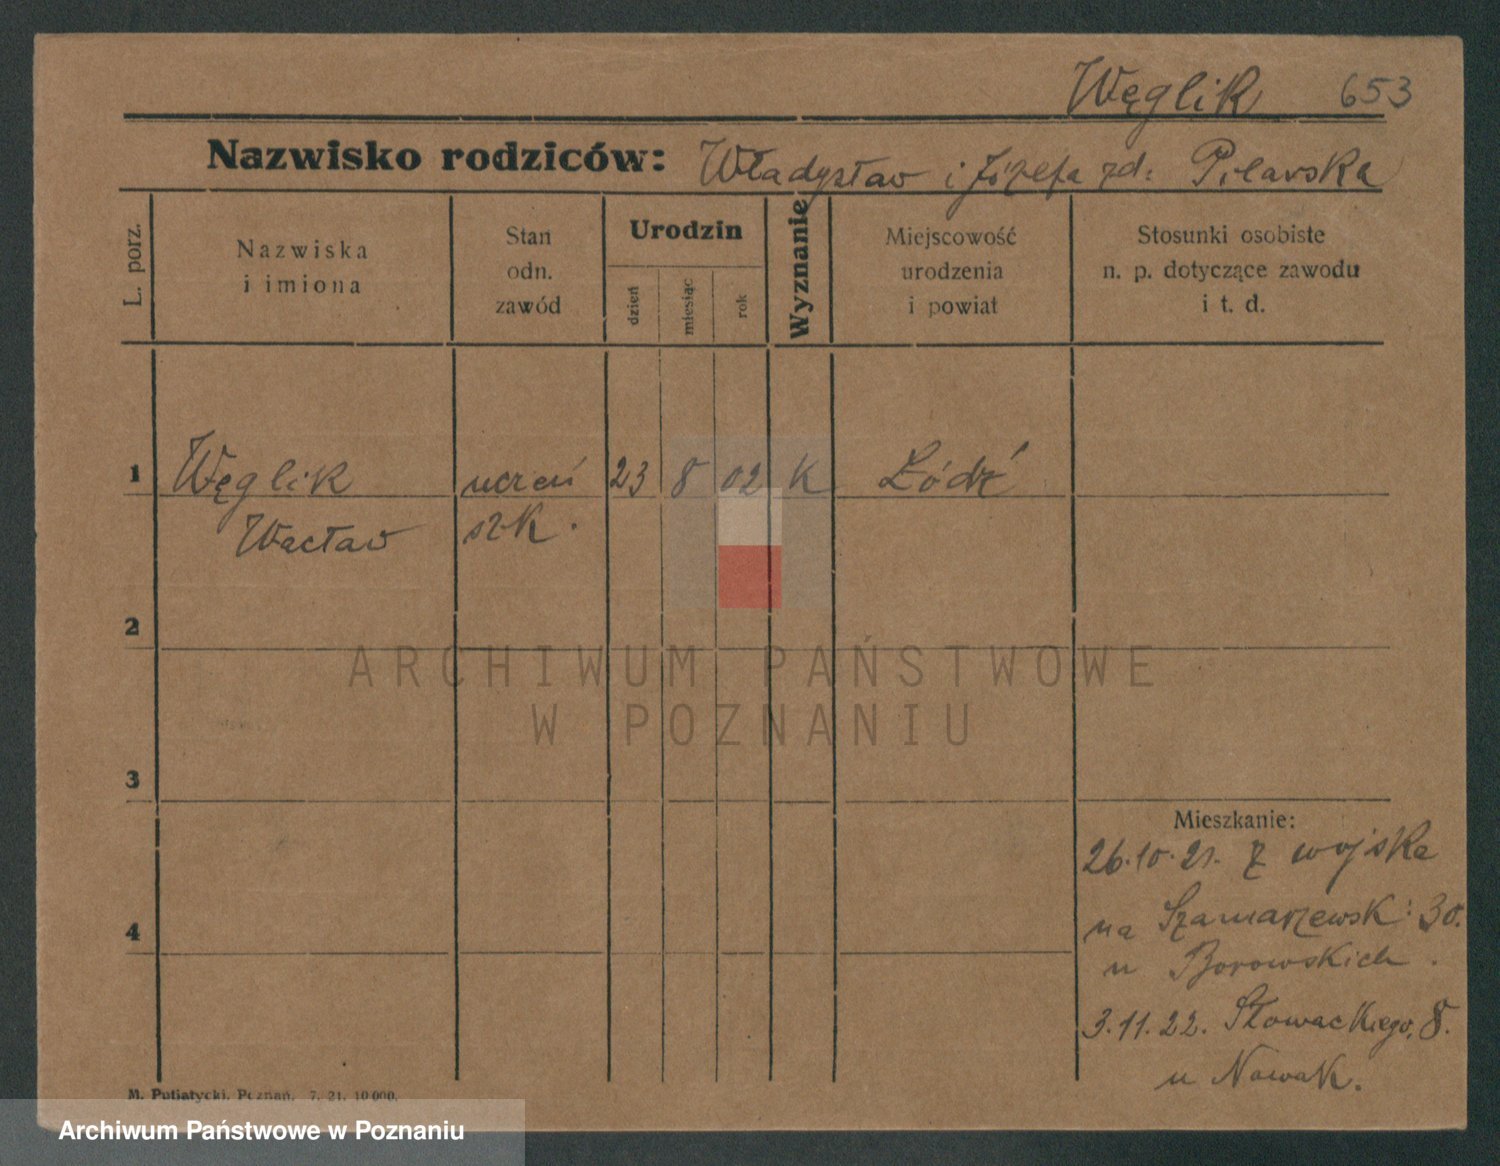 Węglik 653
Nazwisko rodziców: Władysław i Józefa zd: Pilarska
L. porz.
Nazwiska
i imiona
Stan
odn.
zawód
Urodzin
dzień
miesiąc
rok
Wyznanie
Miejscowość
urodzenia
i powiat
Stosunki osobiste
n. p. dotyczące zawodu
i t. d.
1 Węglik uczeń 23 8 02 K Łódź
Wacław szk.
2
3
4
Mieszkanie:
26.10.21. z wojska
na Szamarzewsk: 30.
u Borowskich.
3.11.22. Słowackiego, 8.
u Nowak.
M. Putiatycki, Poznań. 7. 21. 10 000.
ARCHIWUM PAŃSTWOWE
W POZNANIU
Archiwum Państwowe w Poznaniu